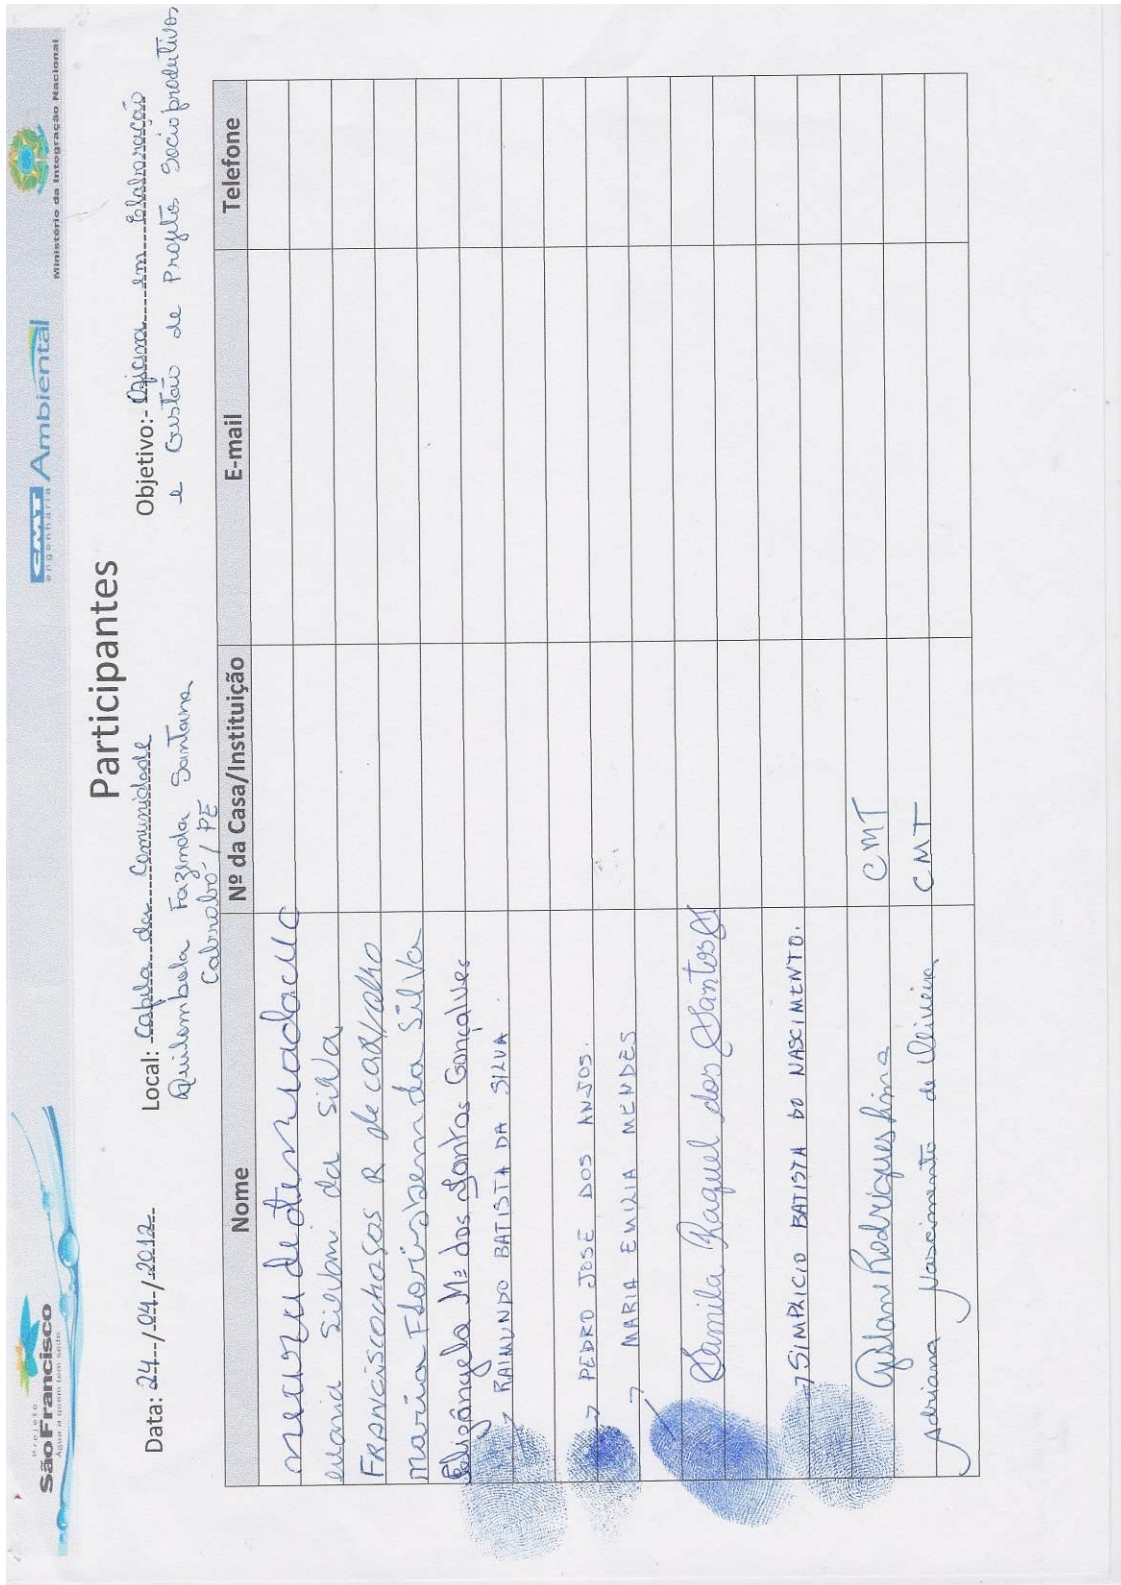 Projeto
São Francisco
Água a quem tem sede
CMT Ambiental
engenharia
Ministério da Integração Nacional
Participantes
Data: 24/04/2012
Local: Capela da Comunidade
Quilombola Fazenda Santana
Cabrobó-/PE
Objetivo:- Oficina em Elaboração
e Gestão de Projeto Socioprodutivos
Nome Nº da Casa/Instituição E-mail Telefone
maria Silvani da Silva
FRANCisco chagas R de carvalho
maria Florisbem da Silva
Elizângela Mª dos Santos Gonçalves
RAIMUNDO BATISTA DA SILVA
PEDRO JOSÉ DOS ANJOS.
MARIA EMILIA MENDES
Samila Raquel dos Santos
SIMPLICIO BATISTA DO NASCIMENTO.
Rodrigues Lima CMT
Adriana Nascimento de Oliveira CMT